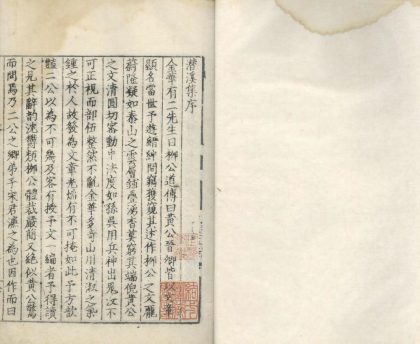 潜溪集序
金華有二先生曰柳公道傳曰黄公晉卿皆以文章
顯名當世予遊縉紳間竊獲窺其述作柳公之文龐
蔚隆凝如泰山之雲層鋪疊湧杳莫窮其端倪黄公
之文清圓切密動中法度如孫吳用兵神出鬼没不
可正視而部伍整然不亂金華多竒山川清淑之氣
鍾之於人故發為文章光燄有不可掩如此予方歆
豔二公以為不可幾及客有授予文一編者予得讀
之見其辭韵沉欝類柳公體裁嚴簡又絶似黄公驚
而問焉乃二公之鄉弟子宋君濂之為也因作而曰